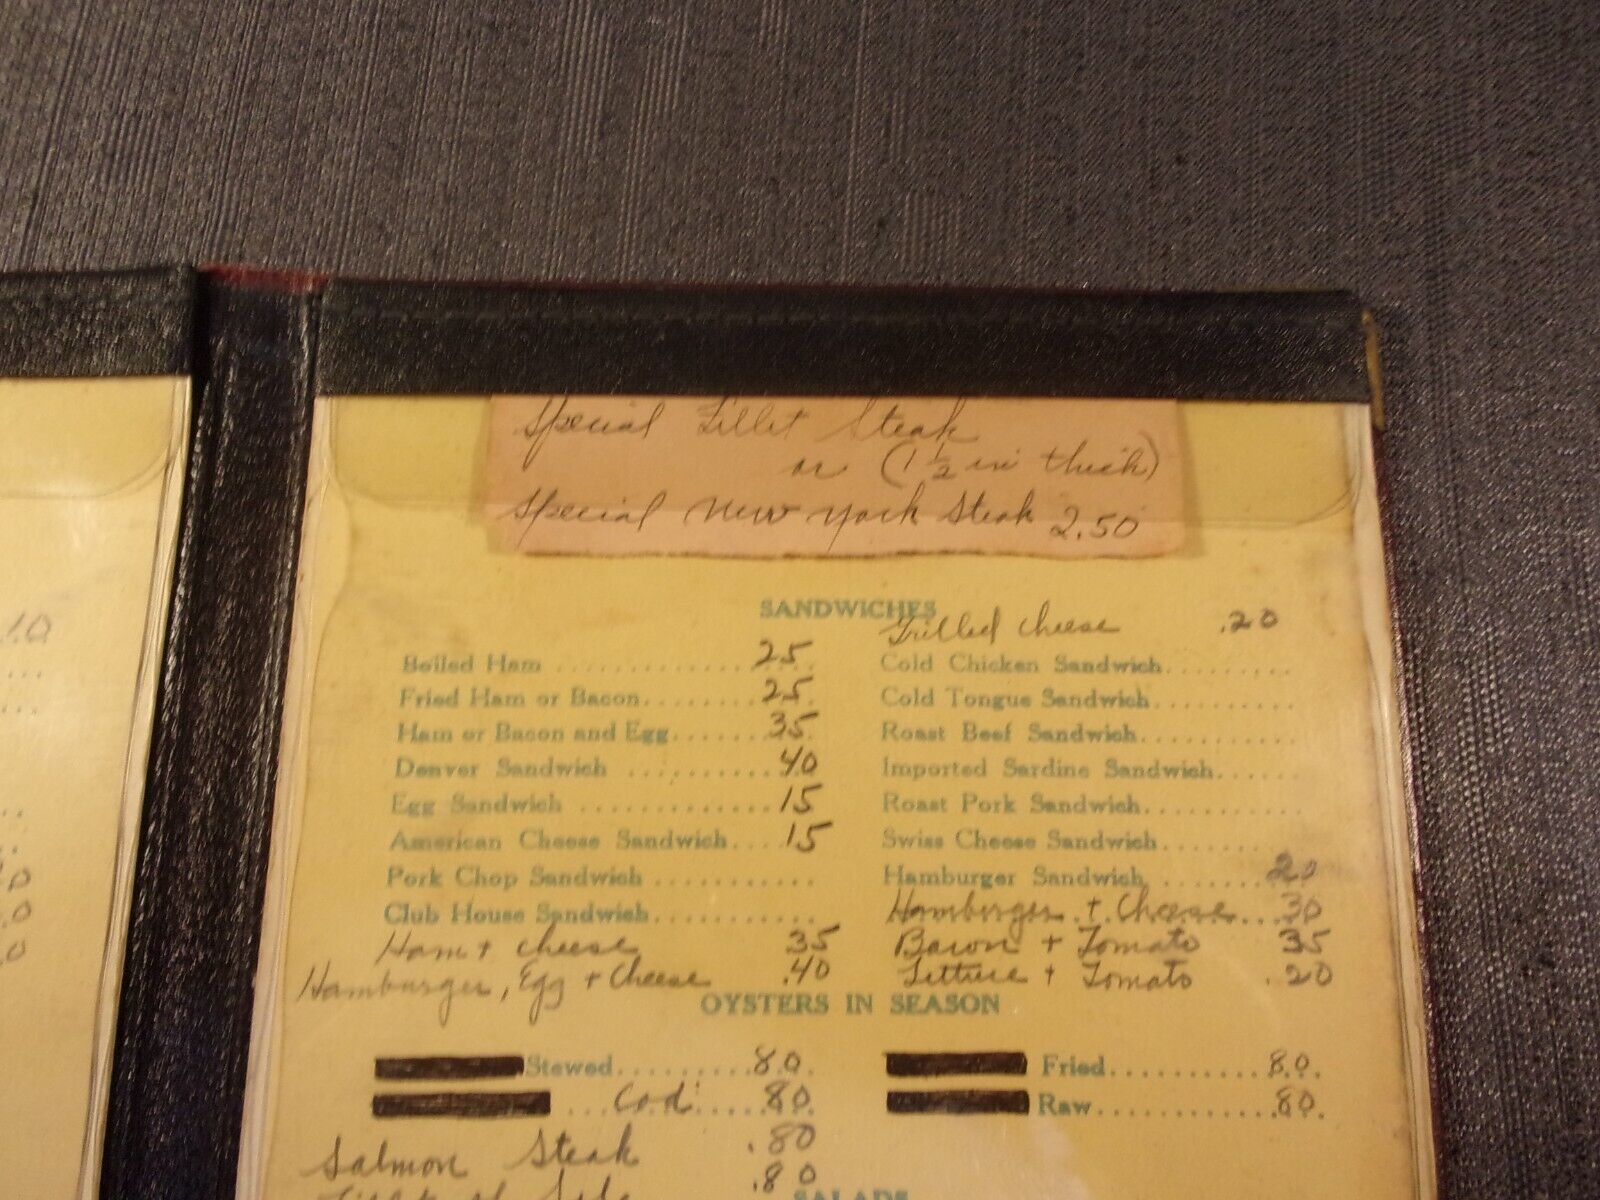 Special Fillet Steak
or (1 1/2 in thick)
Special New York Steak 2.50
SANDWICHES
Boiled Ham .............. 25
Fried Ham or Bacon........ 25
Ham or Bacon and Egg...... 35
Denver Sandwich .......... 40
Egg Sandwich ............. 15
American Cheese Sandwich.... 15
Pork Chop Sandwich ...........
Club House Sandwich...........
Ham + cheese 35
Hamburger, Egg + Cheese .40
Grilled Cheese .20
Cold Chicken Sandwich.........
Cold Tongue Sandwich..........
Roast Beef Sandwich...........
Imported Sardine Sandwich......
Roast Pork Sandwich...........
Swiss Cheese Sandwich.........
Hamburger Sandwich ....... 20
Hamburger + Cheese 30
Bacon + Tomato 35
Lettuce + Tomato .20
OYSTERS IN SEASON
Stewed......... 80
Cod ...... 80
Salmon Steak .80
.80
Fried........... 80
Raw............. 80
SALADS
.10